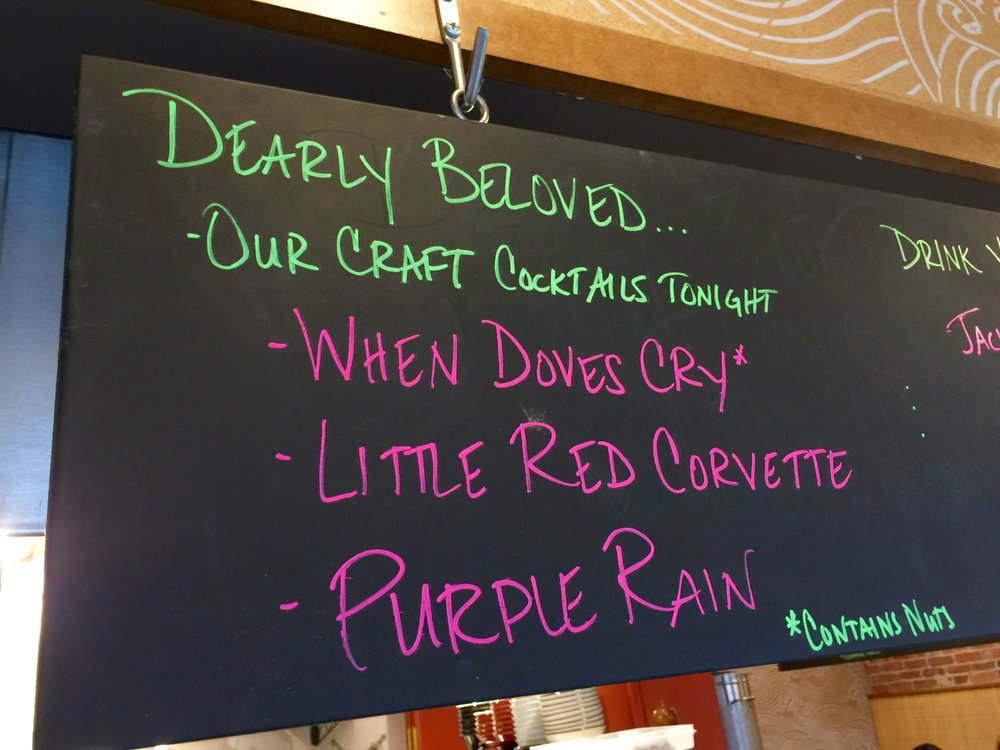 DEARLY BELOVED...
-OUR CRAFT COCKTAILS TONIGHT
-WHEN DOVES CRY*
-LITTLE RED CORVETTE
-PURPLE RAIN
*CONTAINS NUTS
DRINK